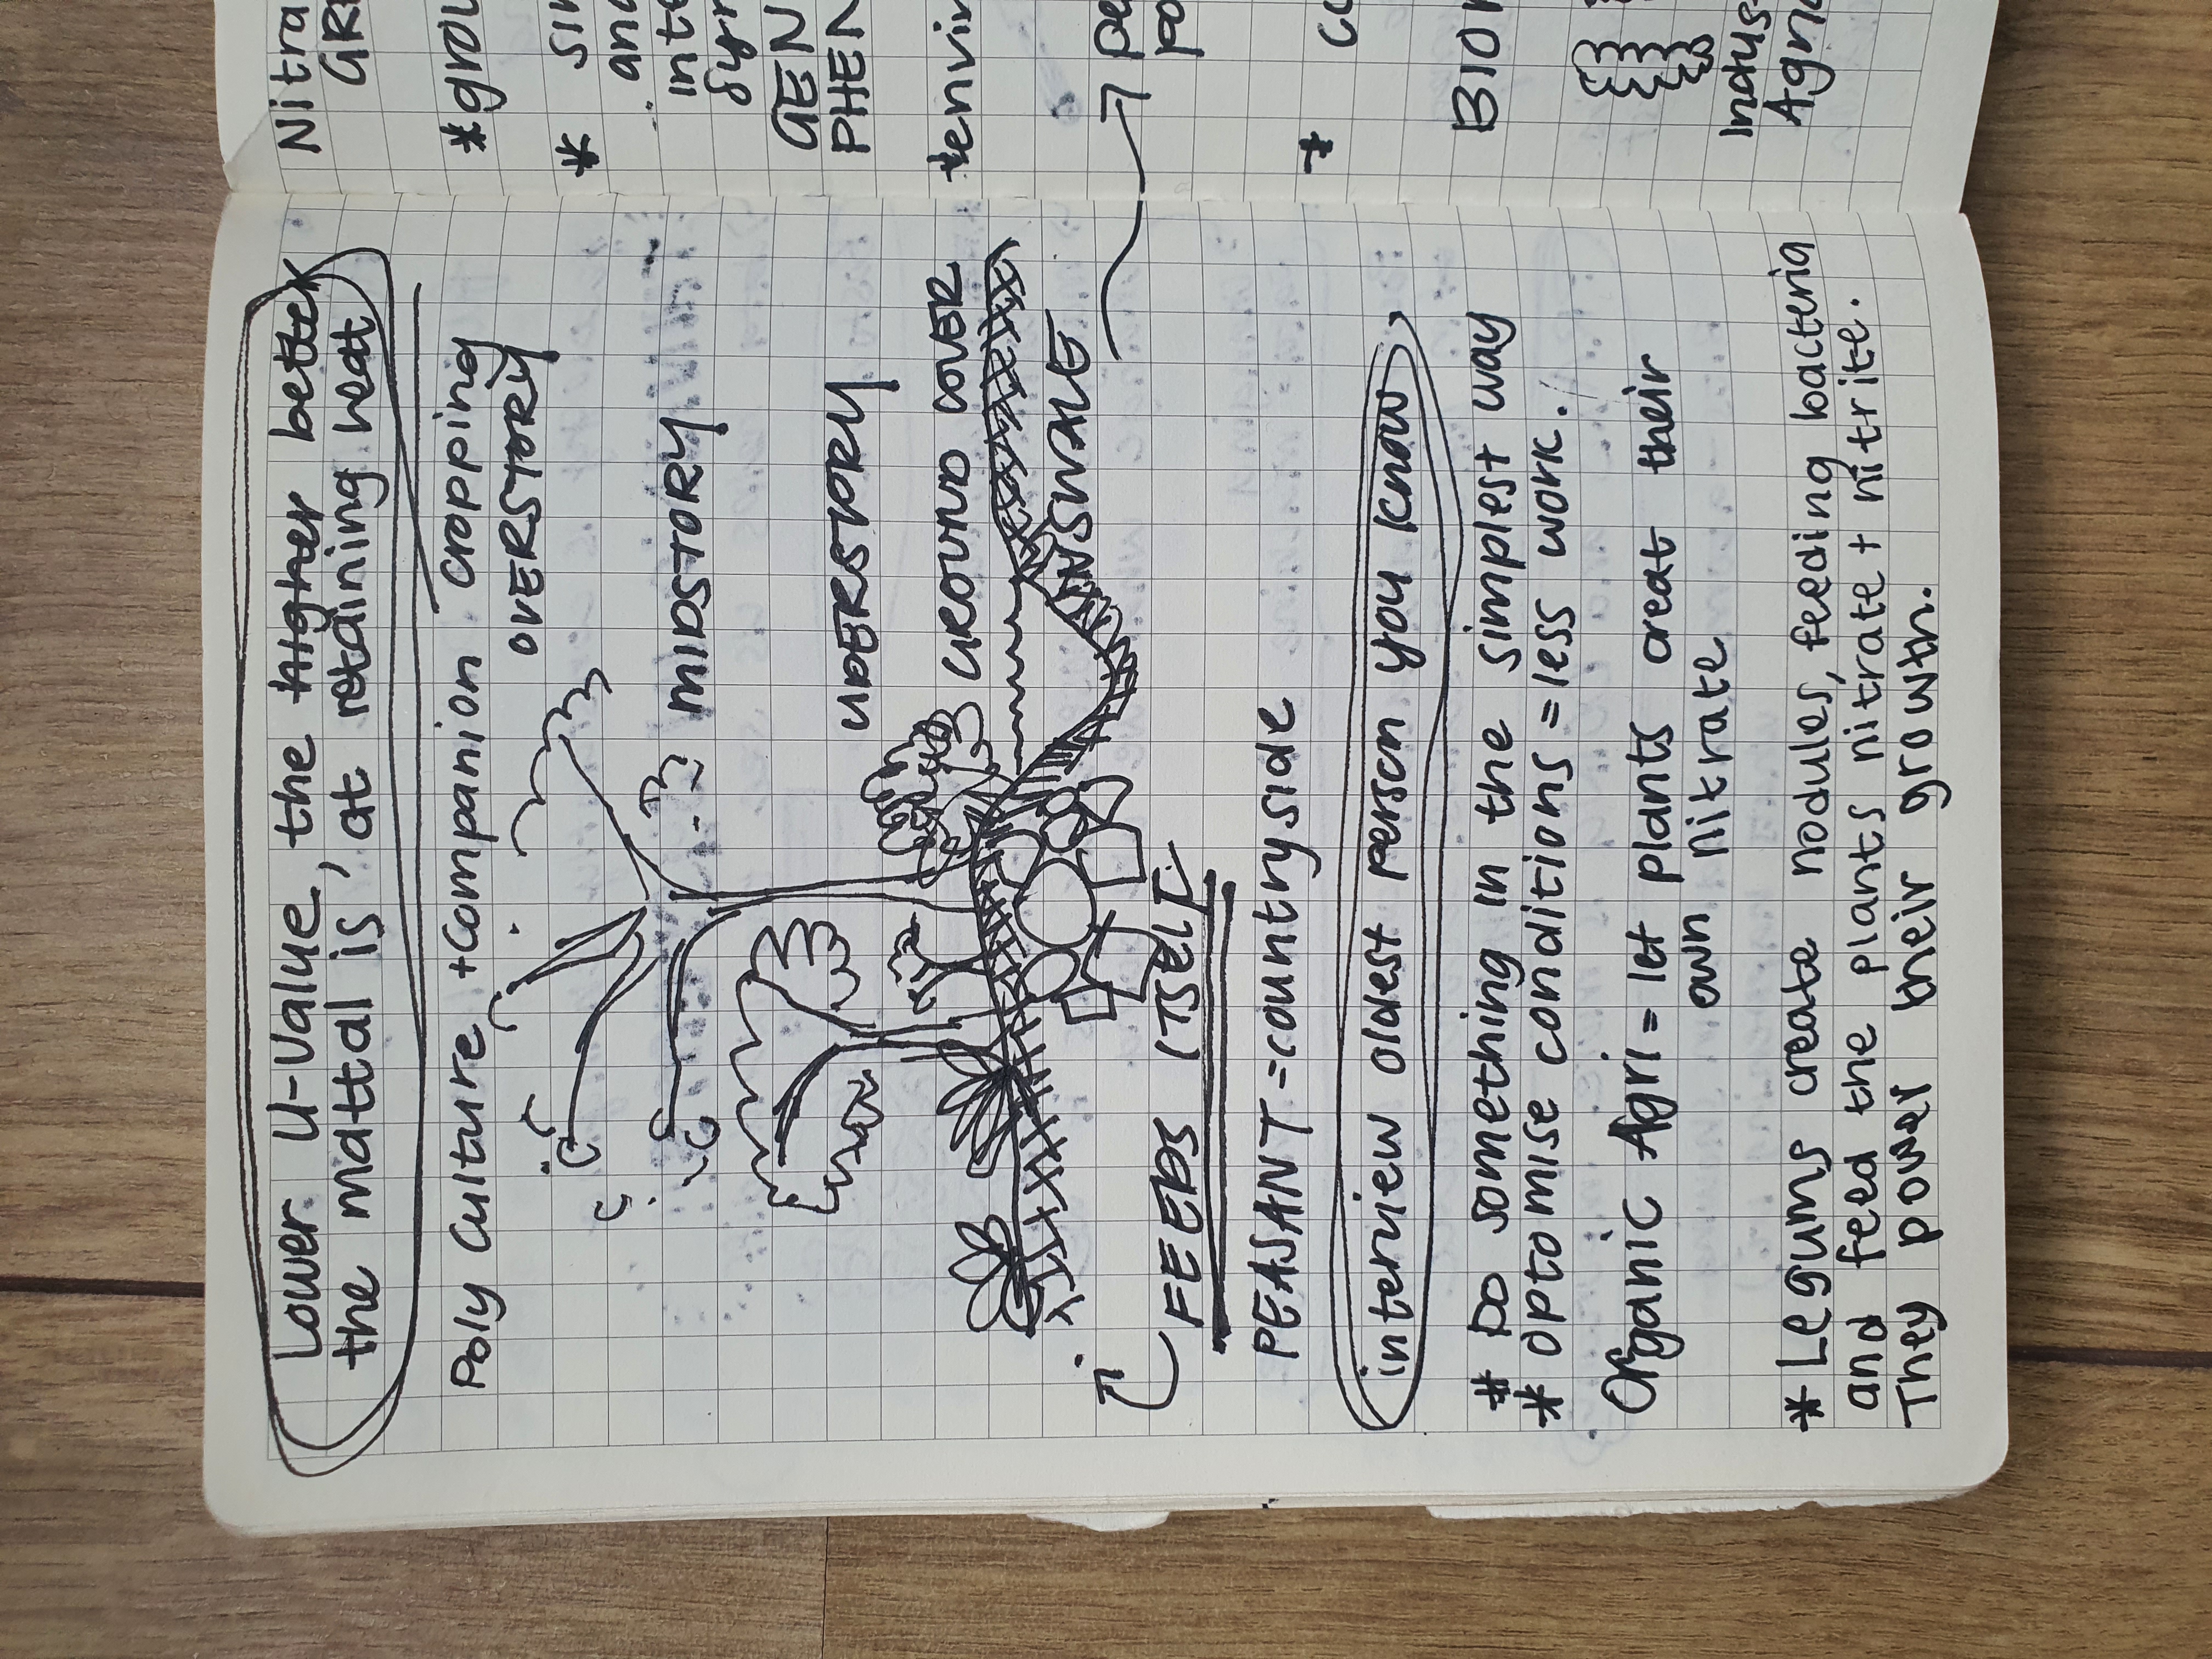 Lower U-Value, the higher better
the mattal is at retaining heat
Poly Culture + Companion cropping
OVERSTORY
MIDSTORY
UDERSTORY
GROUND COVER
INSWALE
FEEDS ITSELF
PEASANT = countryside
interview oldest person you know
* Do something in the simplest way
* optomise conditions = less work.
Organic Agri = let plants creat their
own nitrate
* Legums create nodules, feeding bacteria
and feed the plants nitrate + nitrite.
They power their growth.
Nitra
GRE
* grou
* sin
and
inte
Syn
GEN
PHEN
* envir
pe
po
* co
BIO
Indus
Agri